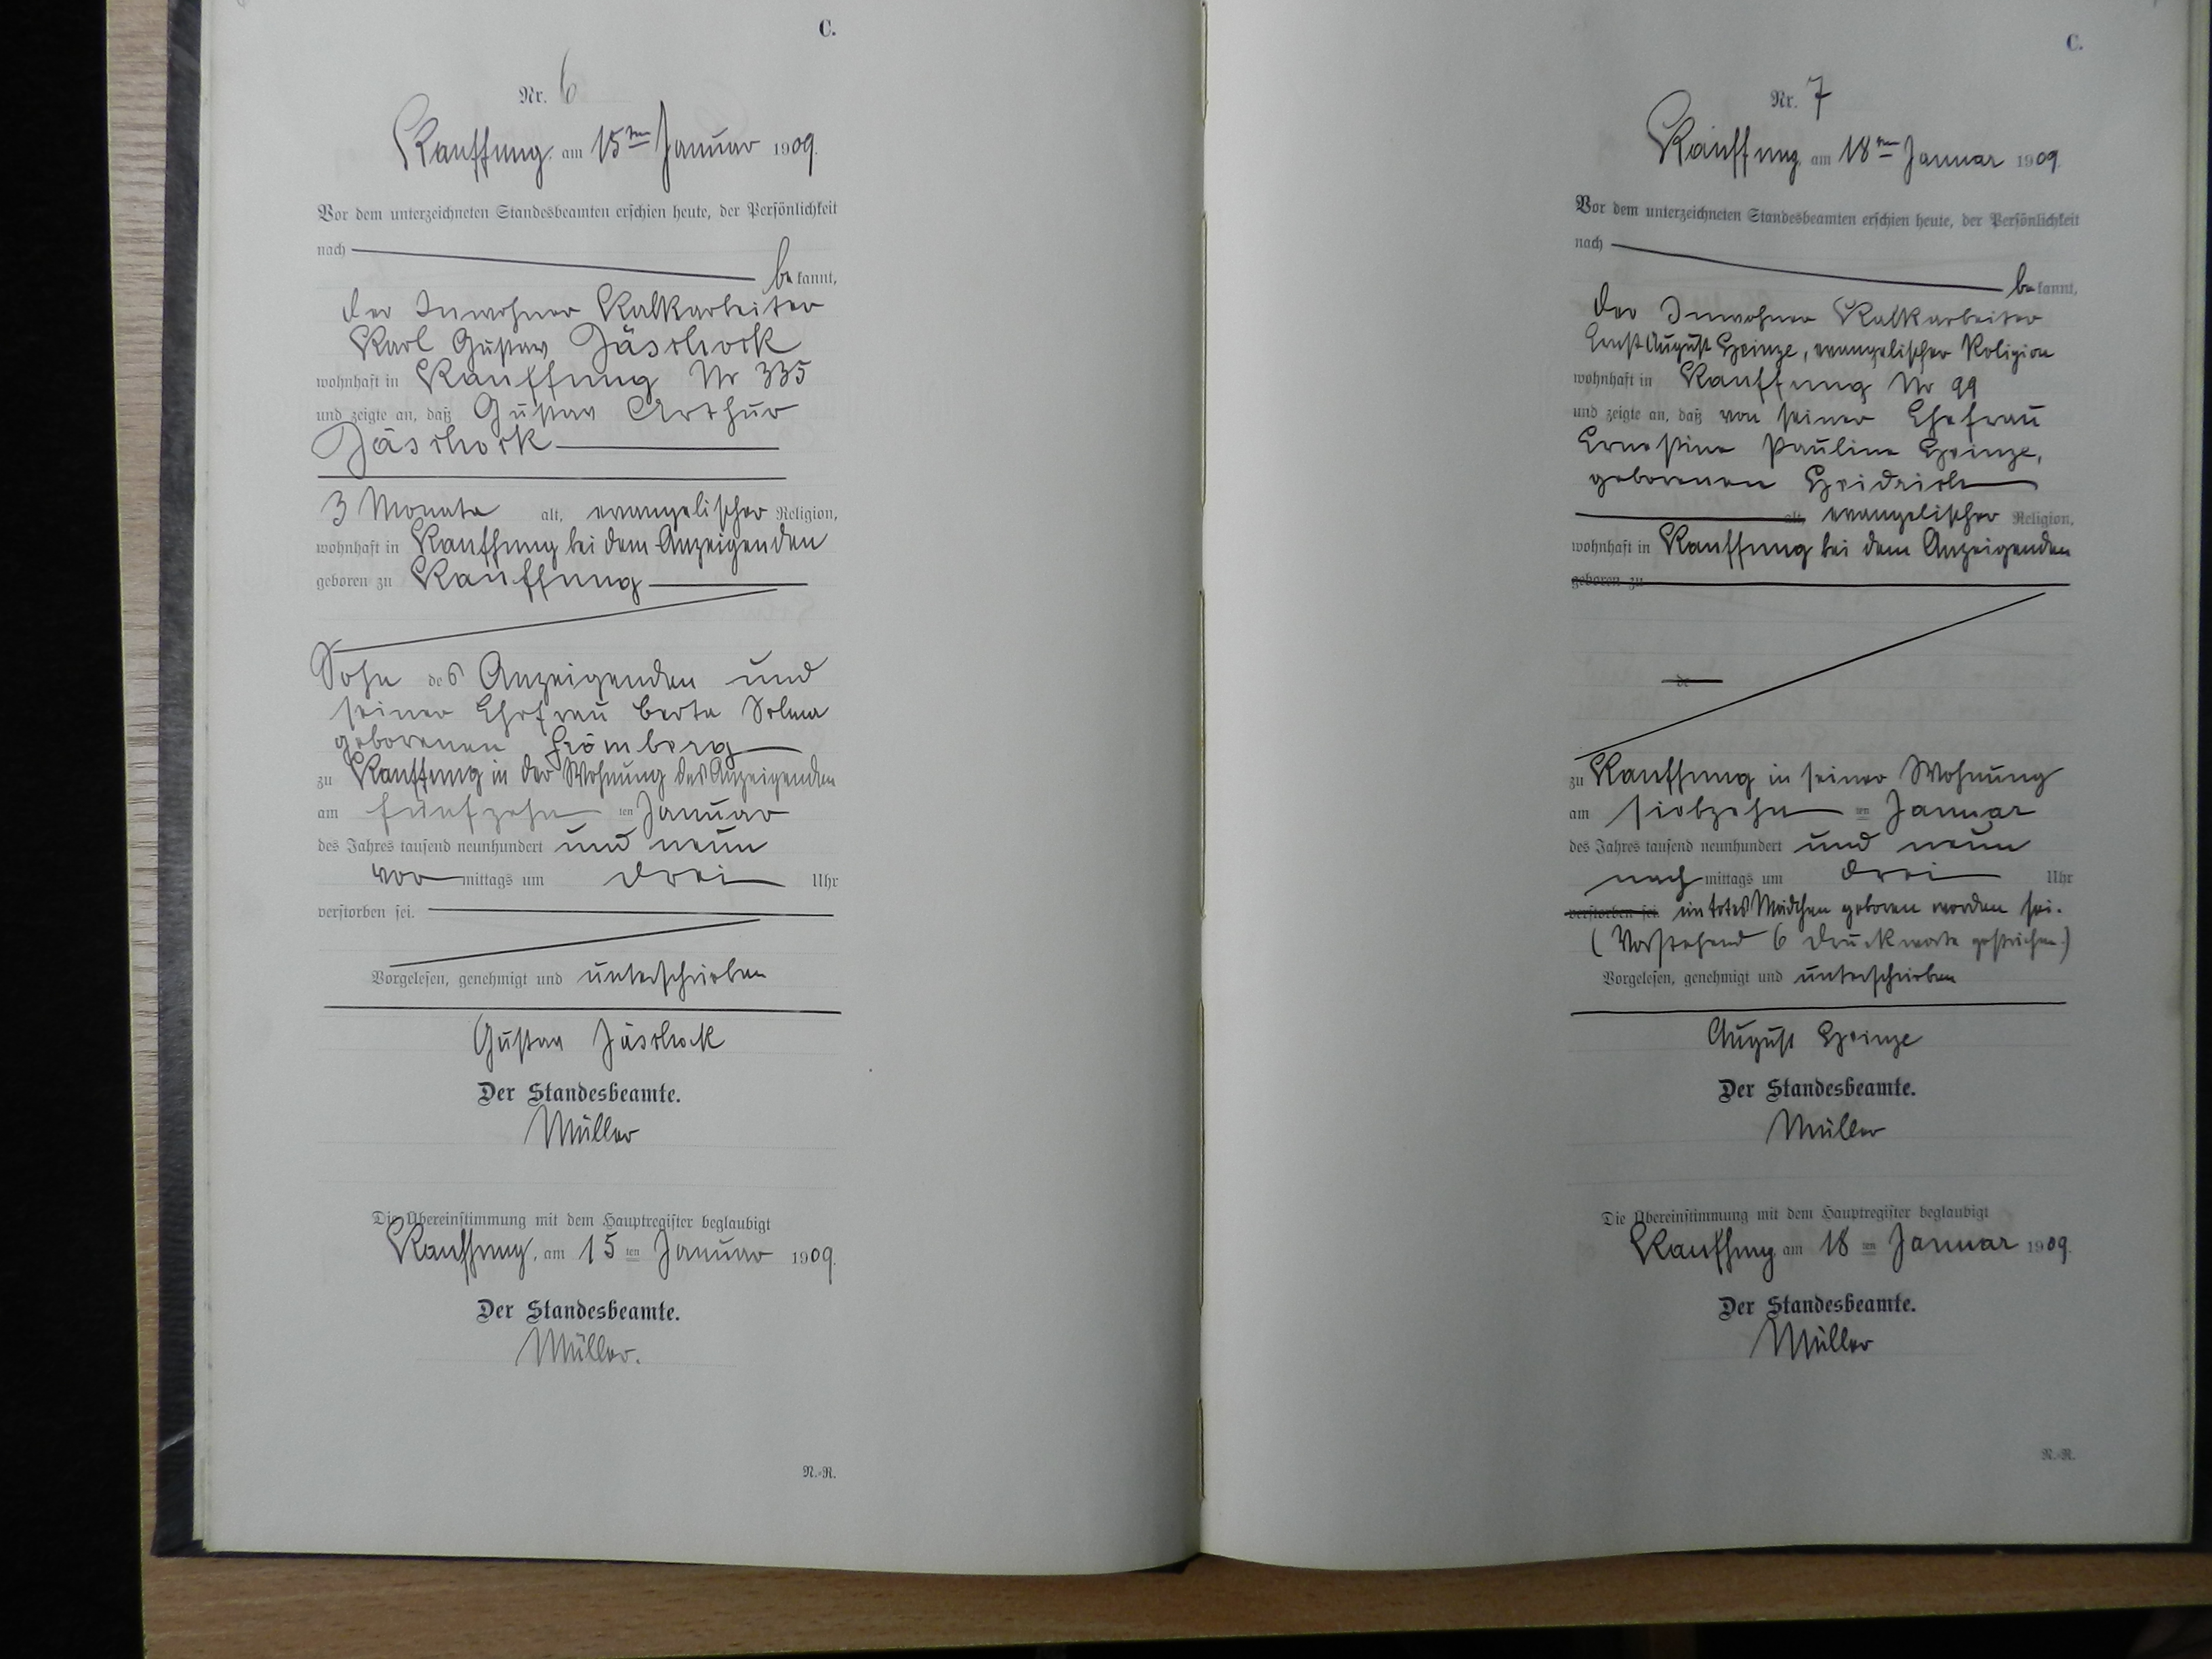 C.
Nr. 6
Kauffung, am 15ten Januar 1909.
Vor dem unterzeichneten Standesbeamten erschien heute, der Persönlichkeit
nach
be kannt,
der Inwohner Kalkarbeiter
Karl Gustav Jäschock
wohnhaft in Kauffung Nr 335
und zeigte an, daß Gustav Arthur
Jäschock
3 Monate alt, evangelischer Religion,
wohnhaft in Kauffung bei dem Anzeigenden
geboren zu Kauffung
Sohn des Anzeigenden und
seiner Ehefrau Berta Selma
geborenen Frömberg
zu Kauffung in der Wohnung des Anzeigenden
am fünfzehn ten Januar
des Jahres tausend neunhundert und neun
vor mittags um drei Uhr
verstorben sei.
Vorgelesen, genehmigt und unterschrieben
Gustav Jäschock
Der Standesbeamte.
Müller
Die Übereinstimmung mit dem Hauptregister beglaubigt
Kauffung, am 15 ten Januar 1909.
Der Standesbeamte.
Müller.
N.-R.
C.
Nr. 7
Kauffung, am 18ten Januar 1909.
Vor dem unterzeichneten Standesbeamten erschien heute, der Persönlichkeit
nach
be kannt,
der Inwohner Kalkarbeiter
Ernst August Heinze, evangelischer Religion
wohnhaft in Kauffung Nr 99
und zeigte an, daß von seiner Ehefrau
Ernestine Pauline Heinze,
geborenen Heidrich
alt, evangelischer Religion,
wohnhaft in Kauffung bei dem Anzeigenden
geboren zu
de
zu Kauffung in seiner Wohnung
am siebzehn ten Januar
des Jahres tausend neunhundert und neun
nach mittags um drei Uhr
verstorben sei ein totes Mädchen geboren worden sei.
(Vorstehend 6 Druckworte gestrichen.)
Vorgelesen, genehmigt und unterschrieben
August Heinze
Der Standesbeamte.
Müller
Die Übereinstimmung mit dem Hauptregister beglaubigt
Kauffung am 18 ten Januar 1909.
Der Standesbeamte.
Müller
N.-R.